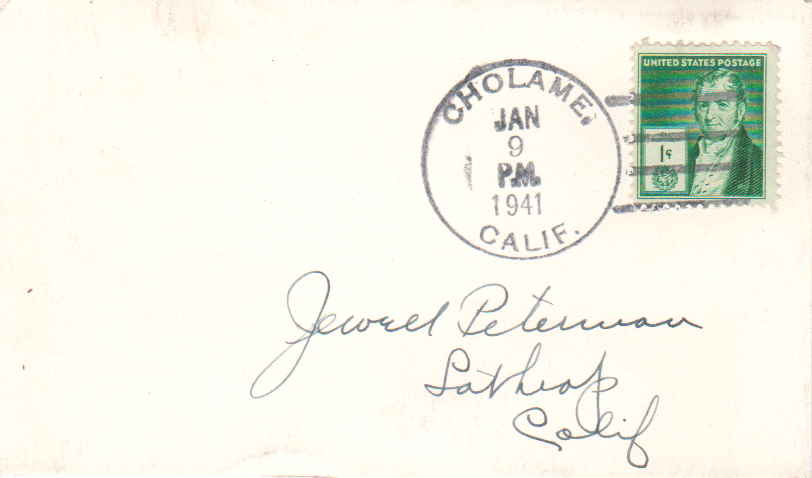 UNITED STATES POSTAGE
1¢
CHOLAME,
JAN
9
P.M.
1941
CALIF.
Jewell Peterman
Lathrop
Calif